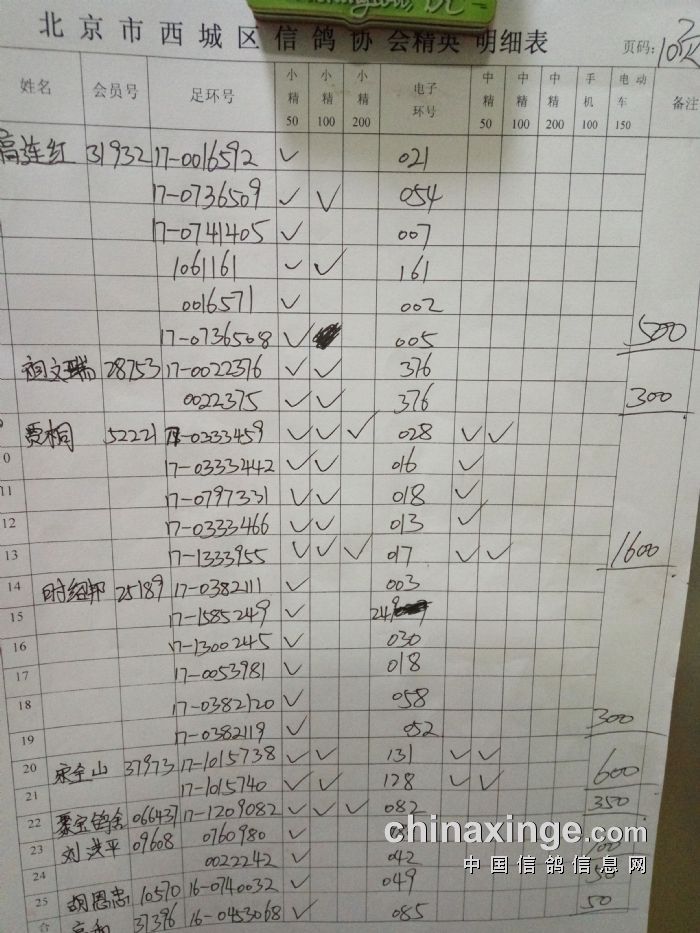 北京市西城区信鸽协会精英 明细表
页码:10
姓名 会员号 足环号 小精50 小精100 小精200 电子环号 中精50 中精100 中精200 手机100 电动车150 备注
高连红 31932 17-0016592 ✓ 021
17-0736509 ✓ ✓ 054
17-0741405 ✓ 007
1061161 ✓ ✓ 161
0016571 ✓ 002
17-0736508 ✓ 005 500
28753 17-0022376 ✓ ✓ 376
0022375 ✓ ✓ 376 300
贾桐 52221 17-0333459 ✓ ✓ ✓ 028 ✓ ✓
0 17-0333442 ✓ ✓ 016 ✓
11 17-0797331 ✓ ✓ 018 ✓
12 17-0333466 ✓ ✓ 013 ✓
13 17-1333955 ✓ ✓ ✓ 017 ✓ ✓ 1600
14 时绍邦 25189 17-0382111 ✓ 003
15 17-1585249 ✓ 249
16 17-1300245 ✓ 030
17 17-0053981 ✓ 018
18 17-0382120 ✓ 058
19 17-0382119 ✓ 052 300
20 宋全山 37973 17-1015738 ✓ ✓ 131 ✓ ✓
21 17-1015740 ✓ ✓ 128 ✓ ✓ 600
22 聚宝鸽舍 066437 17-1209082 ✓ ✓ ✓ 082 350
23 刘洪平 09608 0760980 ✓
chinaxinge.com
24 0022242 ✓ 042 100
中国信鸽信息网
25 胡恩忠 10570 16-0740032 ✓ 049 50
合 37396 16-0453068 ✓ 085 50